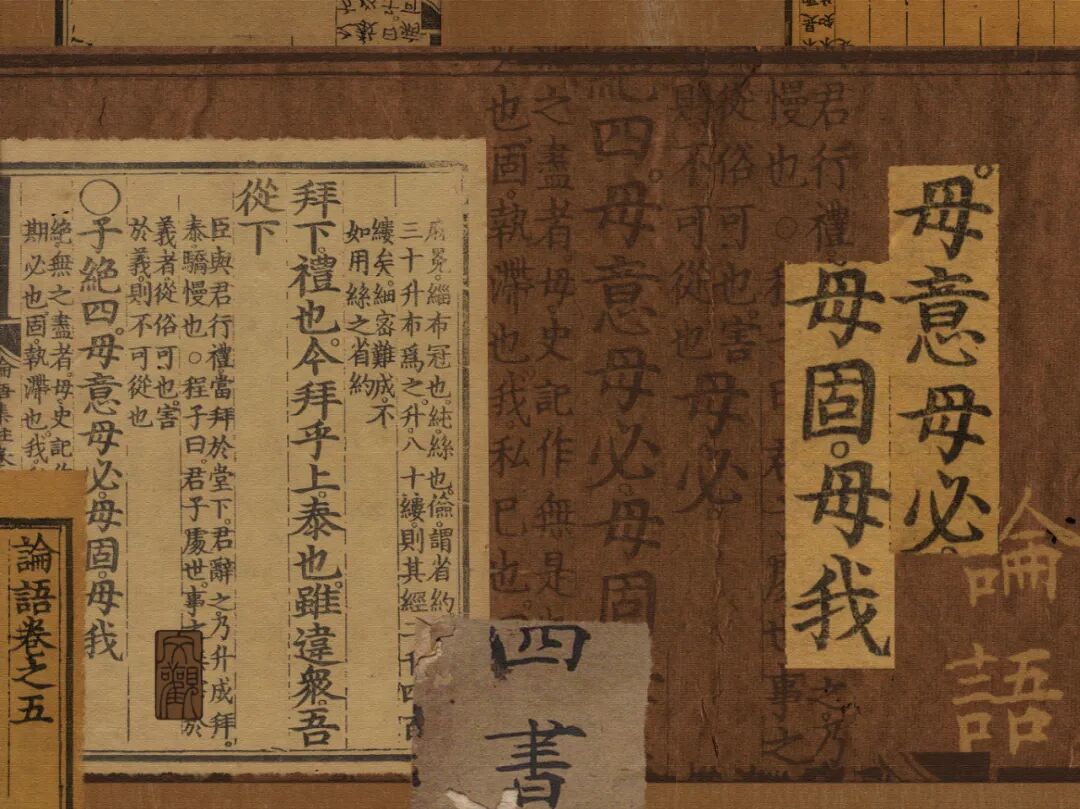 毋意毋必。
毋固。毋我
論語
君行禮。
慢也〇程子曰。君子處世。事之
從俗可也。害
則不可從也
毋必。
絕四。毋意毋必。毋固
之盡者。毋史記作無是
也。固。執滯也。我。私己也。
四書
麻冕。緇布冠也。純。絲也。儉。謂省約
三十升布爲之。升八十縷。則其經二千四百
縷矣。細密難成。不
如用絲之省約
拜下。禮也。今拜乎上。泰也。雖違衆。吾
從下
臣與君行禮。當拜於堂下。君辭之。乃升成拜。
泰。驕慢也〇程子曰。君子處世。事之
義者。從俗可也。害
於義。則不可從也
〇子絕四。毋意毋必。毋固。毋我
絕。無之盡者。毋史記作
期必也。固。執滯也。我
論語集註卷
論語卷之五
大觀